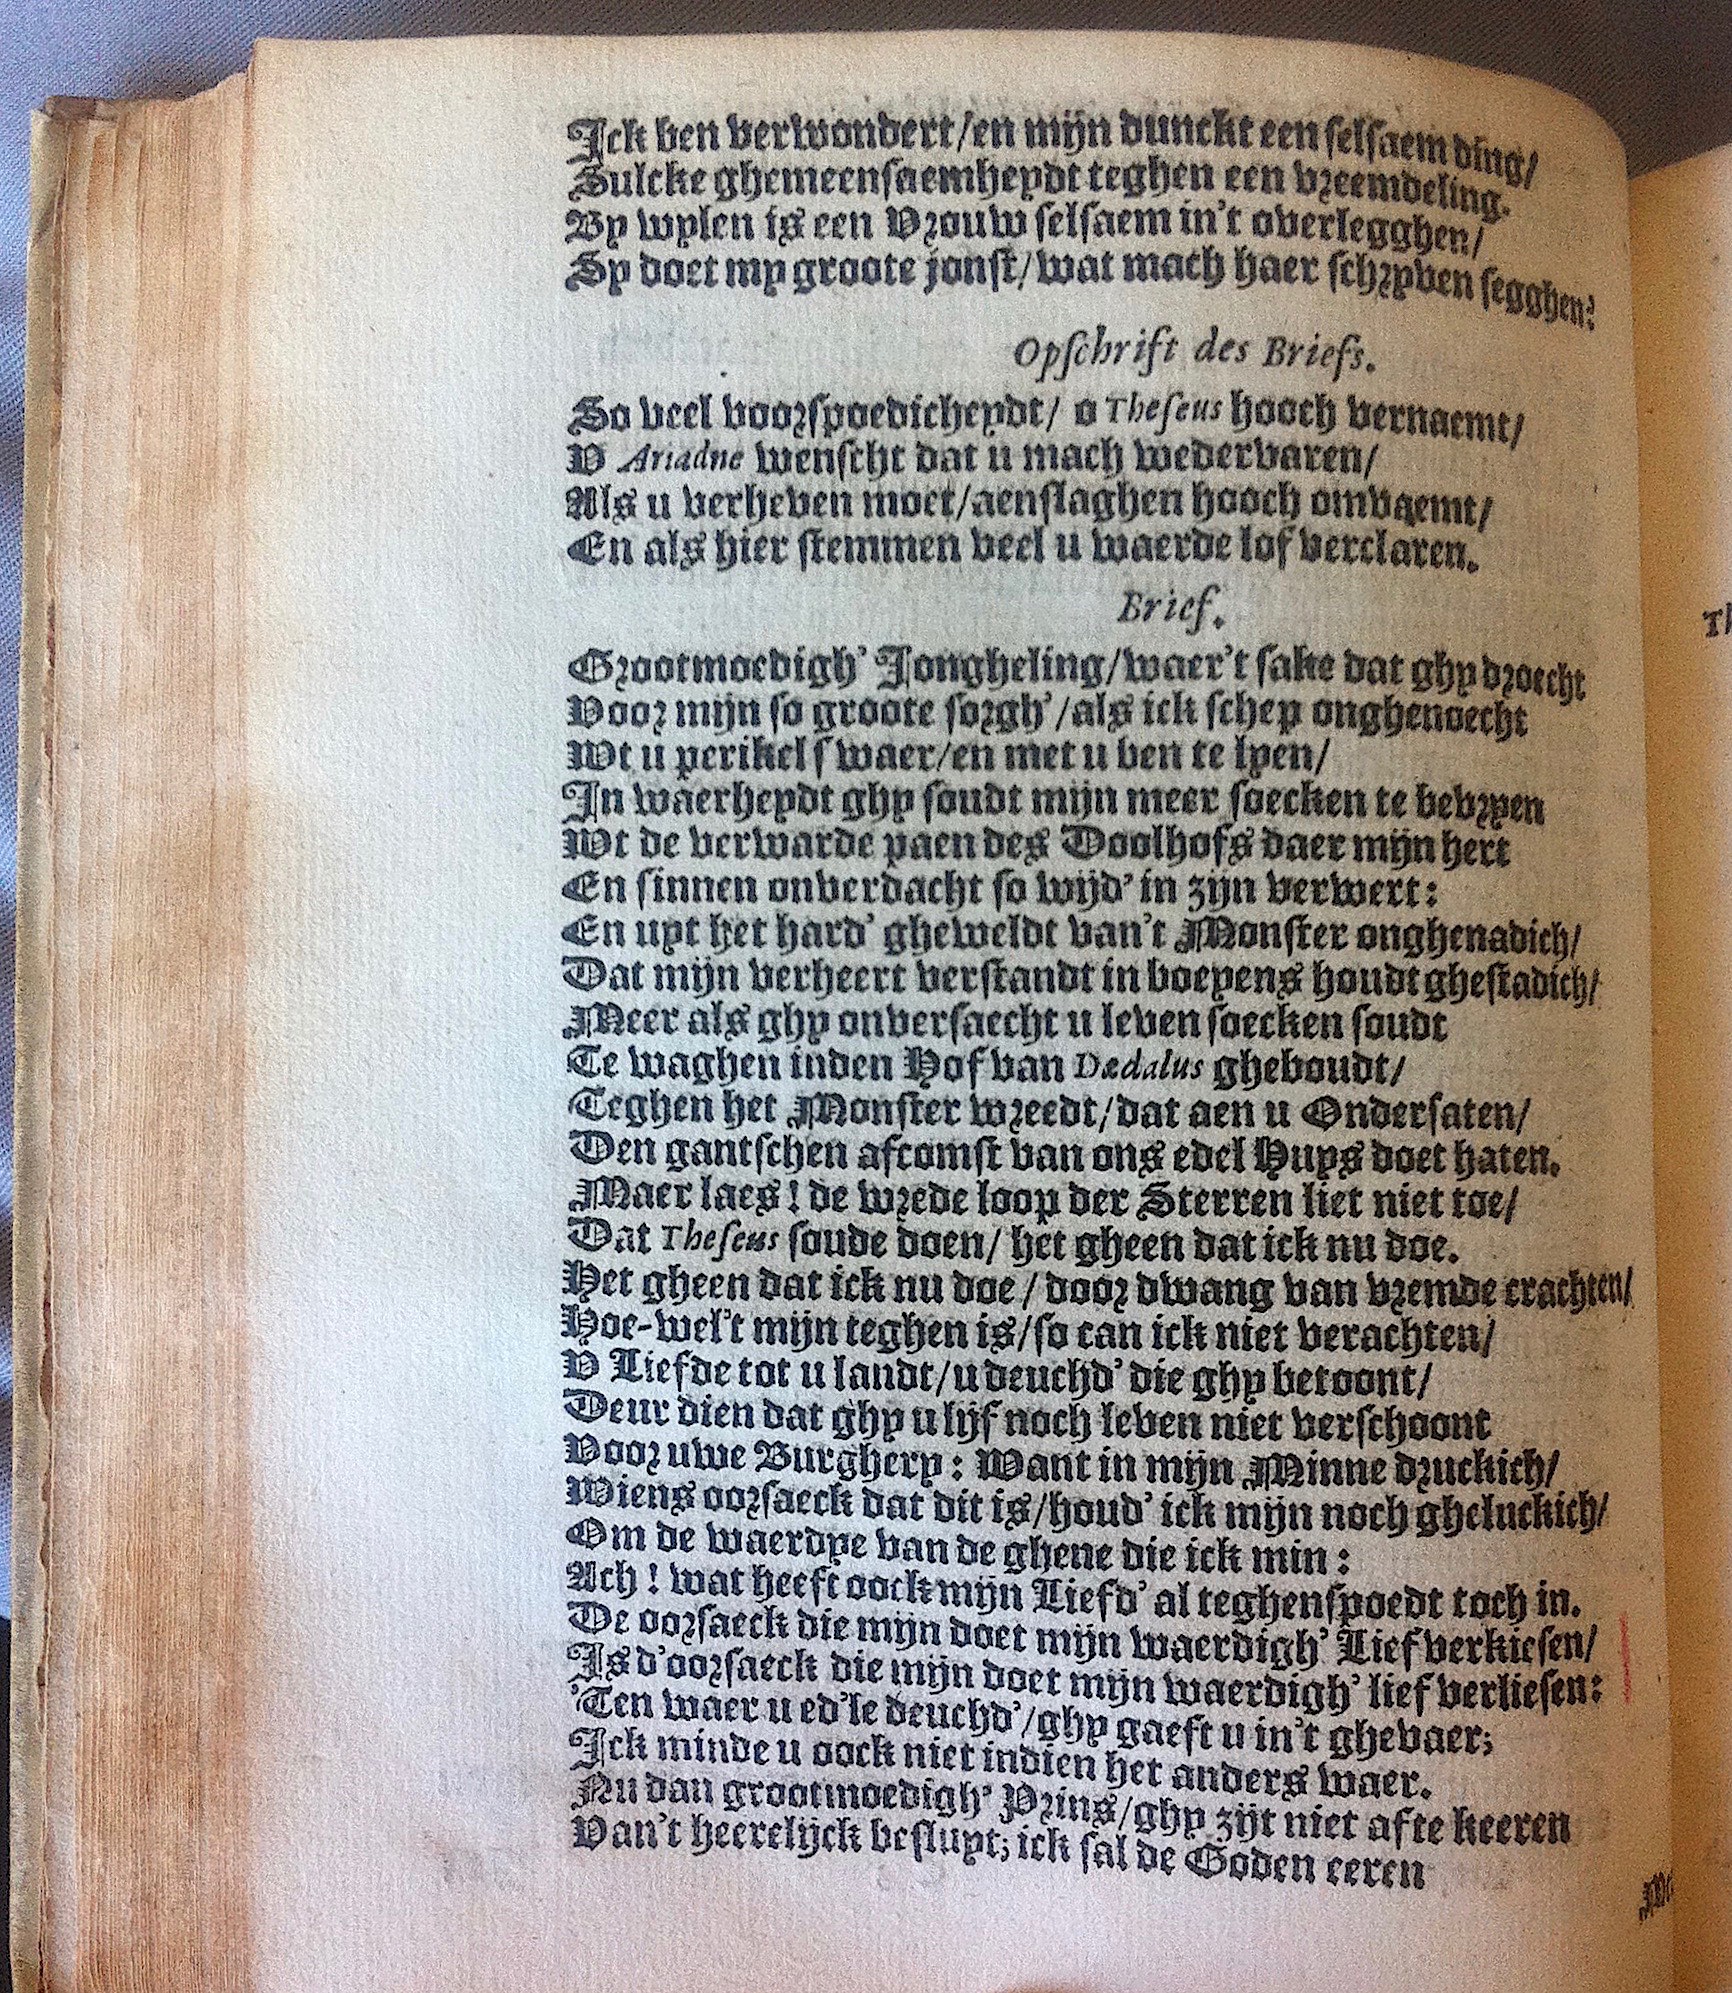 Ick ben verwondert/en mijn dunckt een selsaem ding/
Sulcke ghemeensaemheydt teghen een vreemdeling.
By wylen is een Vrouw selsaem in't overlegghen/
Sy doet my groote jonst/wat mach haer schryven segghen?
Opschrift des Briefs.
So veel voorspoedicheydt/ o Theseus hooch vernaemt/
V Ariadne wenscht dat u mach wedervaren/
Als u verheven moet/aenslaghen hooch omvaemt/
En als hier stemmen veel u waerde lof verclaren.
Brief.
Grootmoedigh' Jongheling/waer't sake dat ghy droecht
Voor mijn so groote sorgh'/als ick schep onghenoecht
Wt u perikel swaer/en met u ben te lyen/
In waerheydt ghy soudt mijn meer soecken te bevryen
Wt de verwarde paen des Doolhofs daer mijn hert
En sinnen onverdacht so wijd' in zijn verwert:
En uyt het hard' gheweldt van't Monster onghenadich/
Dat mijn verheert verstandt in boeyens houdt ghestadich/
Meer als ghy onversaecht u leven soecken soudt
Te waghen inden Hof van Dædalus gheboudt/
Teghen het Monster wreedt/dat aen u Ondersaten/
Den gantschen afcomst van ons edel Huys doet haten.
Maer laes! de wrede loop der Sterren liet niet toe/
Dat Theseus soude doen/ het gheen dat ick nu doe.
Het gheen dat ick nu doe/door dwang van vremde crachten/
Hoe-wel't mijn teghen is/so can ick niet verachten/
V Liefde tot u landt/u deuchd' die ghy betoont/
Deur dien dat ghy u lijf noch leven niet verschoont
Voor uwe Burghery: Want in mijn Minne druckich/
Wiens oorsaeck dat dit is/houd' ick mijn noch gheluckich/
Om de waerdye van de ghene die ick min:
Ach! wat heeft oock mijn Liefd' al teghenspoedt toch in.
De oorsaeck die mijn doet mijn waerdigh' Lief verkiesen/
Is d'oorsaeck die mijn doet mijn waerdigh' lief verliesen:
'Ten waer u ed'le deuchd'/ghy gaeft u in't ghevaer;
Ick minde u oock niet indien het anders waer.
Nu dan grootmoedigh' Prins/ghy zijt niet af te keeren
Van't heerelijck besluyt; ick sal de Goden eeren